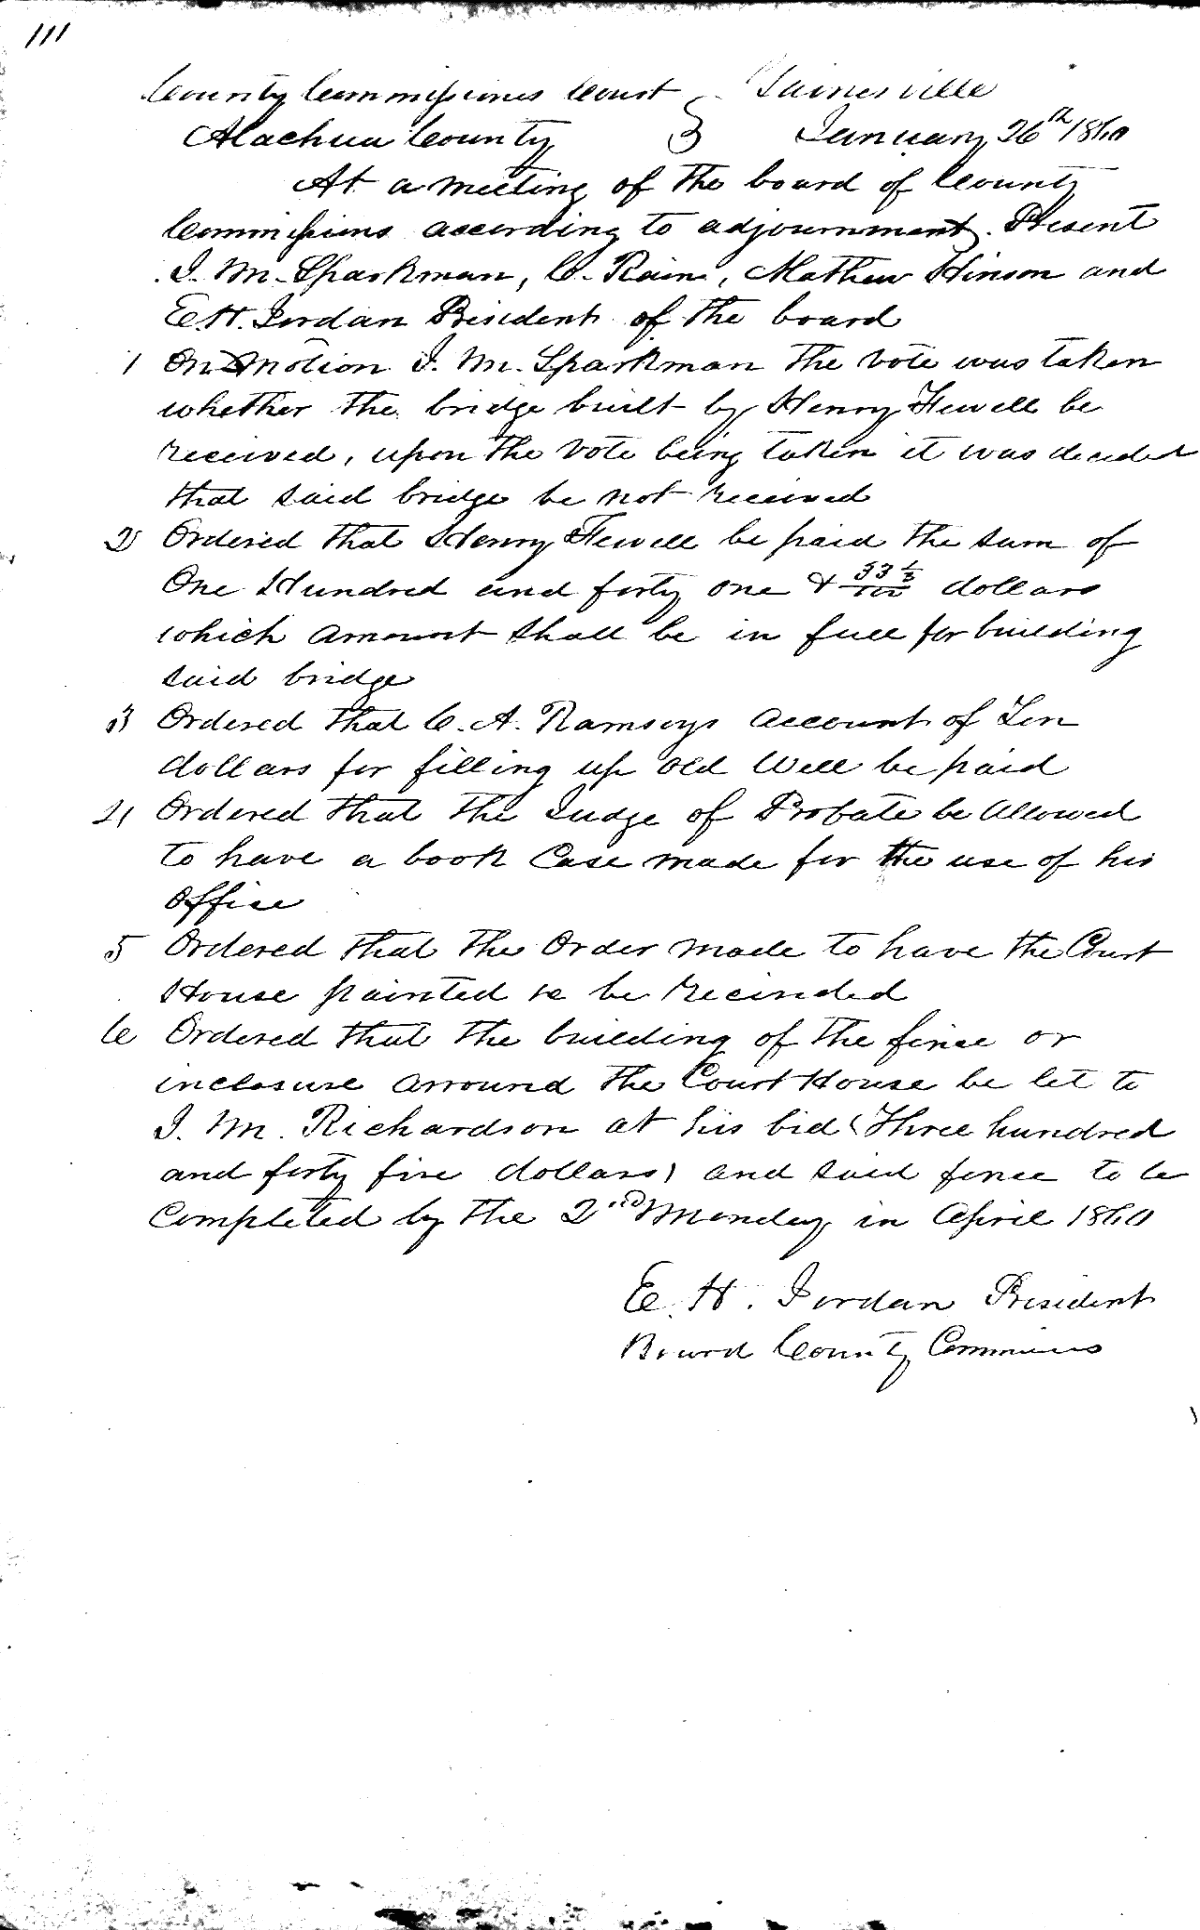 111
County Commissioners Court } Gainesville
Alachua County } January 26th 1860
At a meeting of the board of County
Commissions according to adjournment. Present
J. M. Sparkman, C. Rain, Mathew Hinson and
E. H. Jordan President of the board
1 On motion J. M. Sparkman the vote was taken
whether the bridge built by Henry Fewell be
received, upon the vote being taken it was decided
that said bridge be not received
2 Ordered that Henry Fewell be paid the sum of
One Hundred and forty one & 33 1/3/100 dollars
which amount shall be in full for building
said bridge
3 Ordered that C. A. Ramseys account of Ten
dollars for filling up old Well be paid
4 Ordered that the Judge of Probate be allowed
to have a book Case made for the use of his
Office
5 Ordered that the Order made to have the Court
House painted be recinded
6 Ordered that the building of the fence or
inclosure arround the Court House be let to
J. M. Richardson at his bid (Three hundred
and forty five dollars) and said fence to be
Completed by the 2nd Monday in April 1860
E. H. Jordan President
Board County Commiss